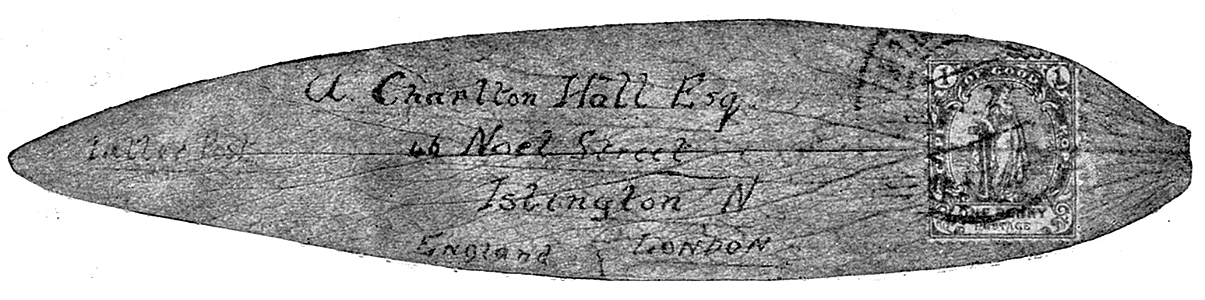 A. Charlton Hall Esq.
46 Noel Street
Letter Post
Islington N
England LONDON
1 OF GOOD 1
ONE PENNY
POSTAGE